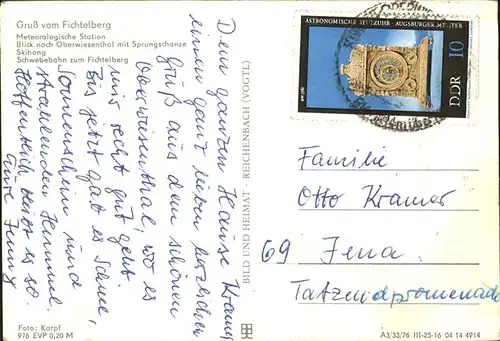 Gruß vom Fichtelberg
Meteorologische Station
Blick nach Oberwiesenthal mit Sprungschanze
Skihang
Schwebebahn zum Fichtelberg
Dem ganzen Hause Kramer
einen ganz lieben herzlichen
Gruß aus dem schönen
Oberwiesenthal, wo es
uns recht gut geht.
Bis jetzt gab es Schnee,
Sonnenschein und
strahlenden Himmel.
Hoffentlich bleibt es so.
Eure Jenny
Foto: Karpf
976 EVP 0,20 M
BILD UND HEIMAT · REICHENBACH (VOGTL)
ASTRONOMISCHE STUTZUHR · AUGSBURGER MEISTER
um 1560
DDR 10
Familie
Otto Kramer
69 Jena
Tatzendpromenade
A3/33/76 III-25-16 04 14 4914